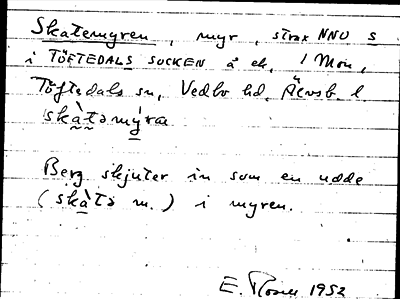 Skatemyren, myr, strax NNO s
i TÖFTEDALS SOCKEN å ek. 1 Mon,
Töftedals sn, Vedbo hd, Älvsb. l.
skàtəmýra
Berg skjuter in som en udde
(skàtə m.) i myren.
E. Rosell 1952